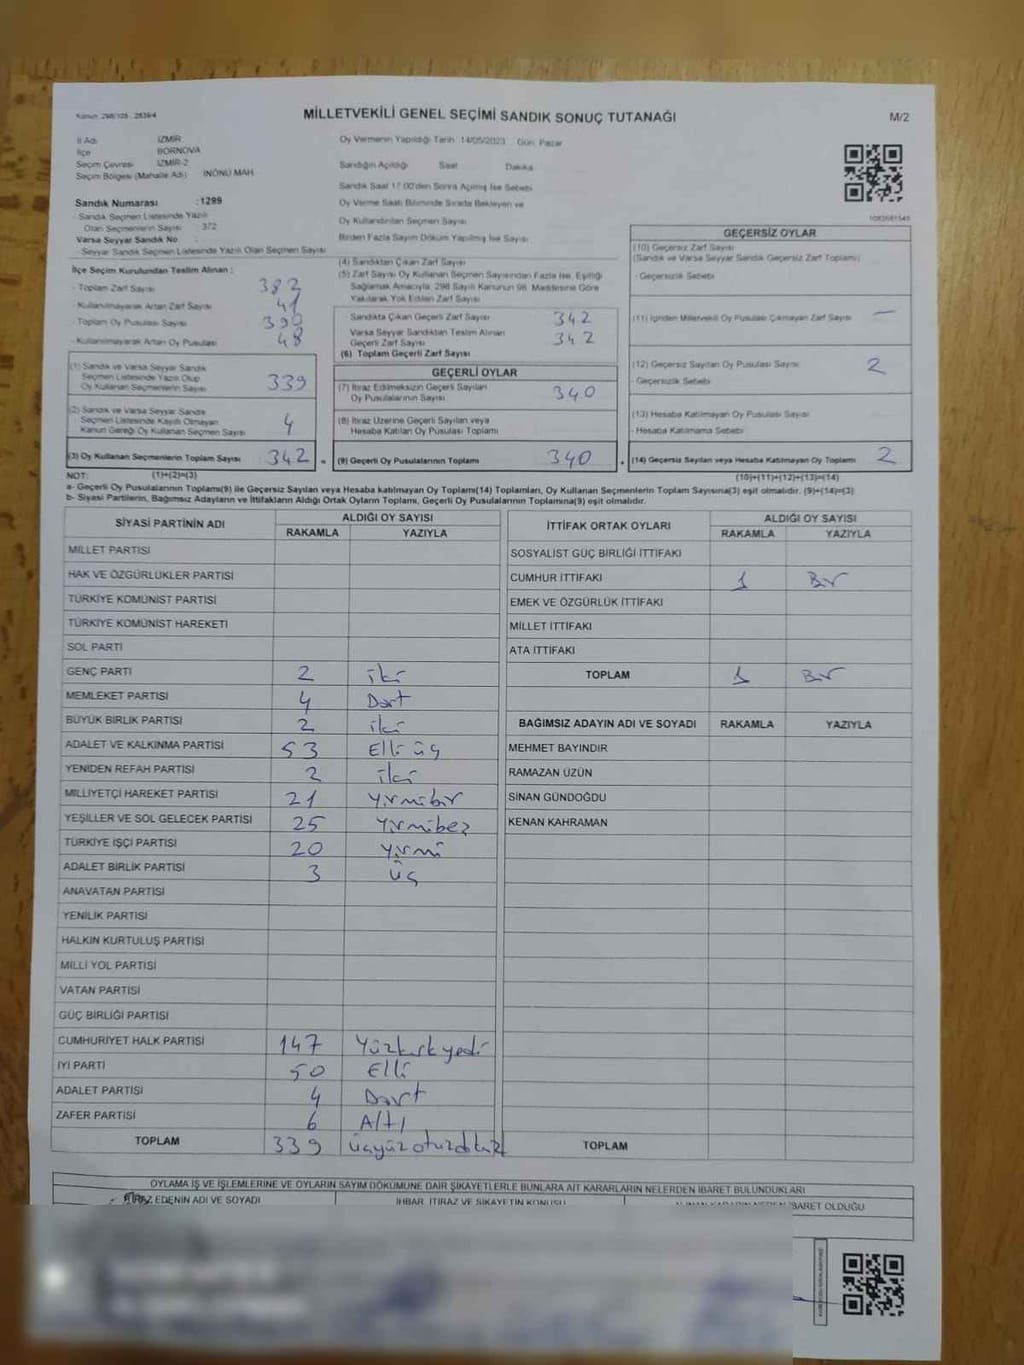 Kanun: 298/105 , 2839/4
MİLLETVEKİLİ GENEL SEÇİMİ SANDIK SONUÇ TUTANAĞI
M/2
İl Adı İZMİR
İlçe BORNOVA
Seçim Çevresi İZMİR-2
Seçim Bölgesi (Mahalle Adı) İNÖNÜ MAH
Oy Vermenin Yapıldığı Tarih 14/05/2023 Gün: Pazar
Sandığın Açıldığı Saat Dakika
Sandık Saat 17.00'den Sonra Açılmış İse Sebebi
Oy Verme Saati Bitiminde Sırada Bekleyen ve
Oy Kullandırılan Seçmen Sayısı
Birden Fazla Sayım Döküm Yapılmış İse Sayısı
Sandık Numarası :1299
- Sandık Seçmen Listesinde Yazılı
Olan Seçmenlerin Sayısı : 372
Varsa Seyyar Sandık No :
- Seyyar Sandık Seçmen Listesinde Yazılı Olan Seçmen Sayısı
İlçe Seçim Kurulundan Teslim Alınan :
- Toplam Zarf Sayısı 382
- Kullanılmayarak Artan Zarf Sayısı 41
- Toplam Oy Pusulası Sayısı 390
- Kullanılmayarak Artan Oy Pusulası 48
(1) Sandık ve Varsa Seyyar Sandık
Seçmen Listesinde Yazılı Olup
Oy Kullanan Seçmenlerin Sayısı 339
(2) Sandık ve Varsa Seyyar Sandık
Seçmen Listesinde Kayıtlı Olmayan
Kanun Gereği Oy Kullanan Seçmen Sayısı 4
(3) Oy Kullanan Seçmenlerin Toplam Sayısı 342
(4) Sandıktan Çıkan Zarf Sayısı
(5) Zarf Sayısı Oy Kullanan Seçmen Sayısından Fazla İse, Eşitliği
Sağlamak Amacıyla, 298 Sayılı Kanunun 98. Maddesine Göre
Yakılarak Yok Edilen Zarf Sayısı
Sandıkta Çıkan Geçerli Zarf Sayısı 342
Varsa Seyyar Sandıktan Teslim Alınan
Geçerli Zarf Sayısı 342
(6) Toplam Geçerli Zarf Sayısı
GEÇERLİ OYLAR
(7) İtiraz Edilmeksizin Geçerli Sayılan
Oy Pusulalarının Sayısı 340
(8) İtiraz Üzerine Geçerli Sayılan veya
Hesaba Katılan Oy Pusulası Toplamı
= (9) Geçerli Oy Pusulalarının Toplamı 340
1083581545
GEÇERSİZ OYLAR
(10) Geçersiz Zarf Sayısı
(Sandık ve Varsa Seyyar Sandık Geçersiz Zarf Toplamı)
- Geçersizlik Sebebi
(11) İçinden Milletvekili Oy Pusulası Çıkmayan Zarf Sayısı —
(12) Geçersiz Sayılan Oy Pusulası Sayısı 2
- Geçersizlik Sebebi
(13) Hesaba Katılmayan Oy Pusulası Sayısı
- Hesaba Katılmama Sebebi
+ (14) Geçersiz Sayılan veya Hesaba Katılmayan Oy Toplamı 2
NOT: (1)+(2)=(3) (10)+(11)+(12)+(13)=(14)
a- Geçerli Oy Pusulalarının Toplamı(9) ile Geçersiz Sayılan veya Hesaba katılmayan Oy Toplamı(14) Toplamları, Oy Kullanan Seçmenlerin Toplam Sayısına(3) eşit olmalıdır. (9)+(14)=(3)
b- Siyasi Partilerin, Bağımsız Adayların ve İttifakların Aldığı Ortak Oyların Toplamı, Geçerli Oy Pusulalarının Toplamına(9) eşit olmalıdır.
SİYASİ PARTİNİN ADI ALDIĞI OY SAYISI
RAKAMLA YAZIYLA
MİLLET PARTİSİ
HAK VE ÖZGÜRLÜKLER PARTİSİ
TÜRKİYE KOMÜNİST PARTİSİ
TÜRKİYE KOMÜNİST HAREKETİ
SOL PARTİ
GENÇ PARTİ 2 iki
MEMLEKET PARTİSİ 4 Dört
BÜYÜK BİRLİK PARTİSİ 2 iki
ADALET VE KALKINMA PARTİSİ 53 Elli üç
YENİDEN REFAH PARTİSİ 2 iki
MİLLİYETÇİ HAREKET PARTİSİ 21 Yirmibir
YEŞİLLER VE SOL GELECEK PARTİSİ 25 Yirmibeş
TÜRKİYE İŞÇİ PARTİSİ 20 Yirmi
ADALET BİRLİK PARTİSİ 3 üç
ANAVATAN PARTİSİ
YENİLİK PARTİSİ
HALKIN KURTULUŞ PARTİSİ
MİLLİ YOL PARTİSİ
VATAN PARTİSİ
GÜÇ BİRLİĞİ PARTİSİ
CUMHURİYET HALK PARTİSİ 147 Yüzkırkyedi
İYİ PARTİ 50 Elli
ADALET PARTİSİ 4 Dört
ZAFER PARTİSİ 6 Altı
TOPLAM 339 üçyüzotuzdokuz
İTTİFAK ORTAK OYLARI ALDIĞI OY SAYISI
RAKAMLA YAZIYLA
SOSYALİST GÜÇ BİRLİĞİ İTTİFAKI
CUMHUR İTTİFAKI 1 Bir
EMEK VE ÖZGÜRLÜK İTTİFAKI
MİLLET İTTİFAKI
ATA İTTİFAKI
TOPLAM 1 Bir
BAĞIMSIZ ADAYIN ADI VE SOYADI RAKAMLA YAZIYLA
MEHMET BAYINDIR
RAMAZAN ÜZÜN
SİNAN GÜNDOĞDU
KENAN KAHRAMAN
TOPLAM
OYLAMA İŞ VE İŞLEMLERİNE VE OYLARIN SAYIM DÖKÜMÜNE DAİR ŞİKAYETLERLE BUNLARA AİT KARARLARIN NELERDEN İBARET BULUNDUKLARI
EDENİN ADI VE SOYADI İHBAR, İTİRAZ VE ŞİKAYETİN KONUSU İBARET OLDUĞU